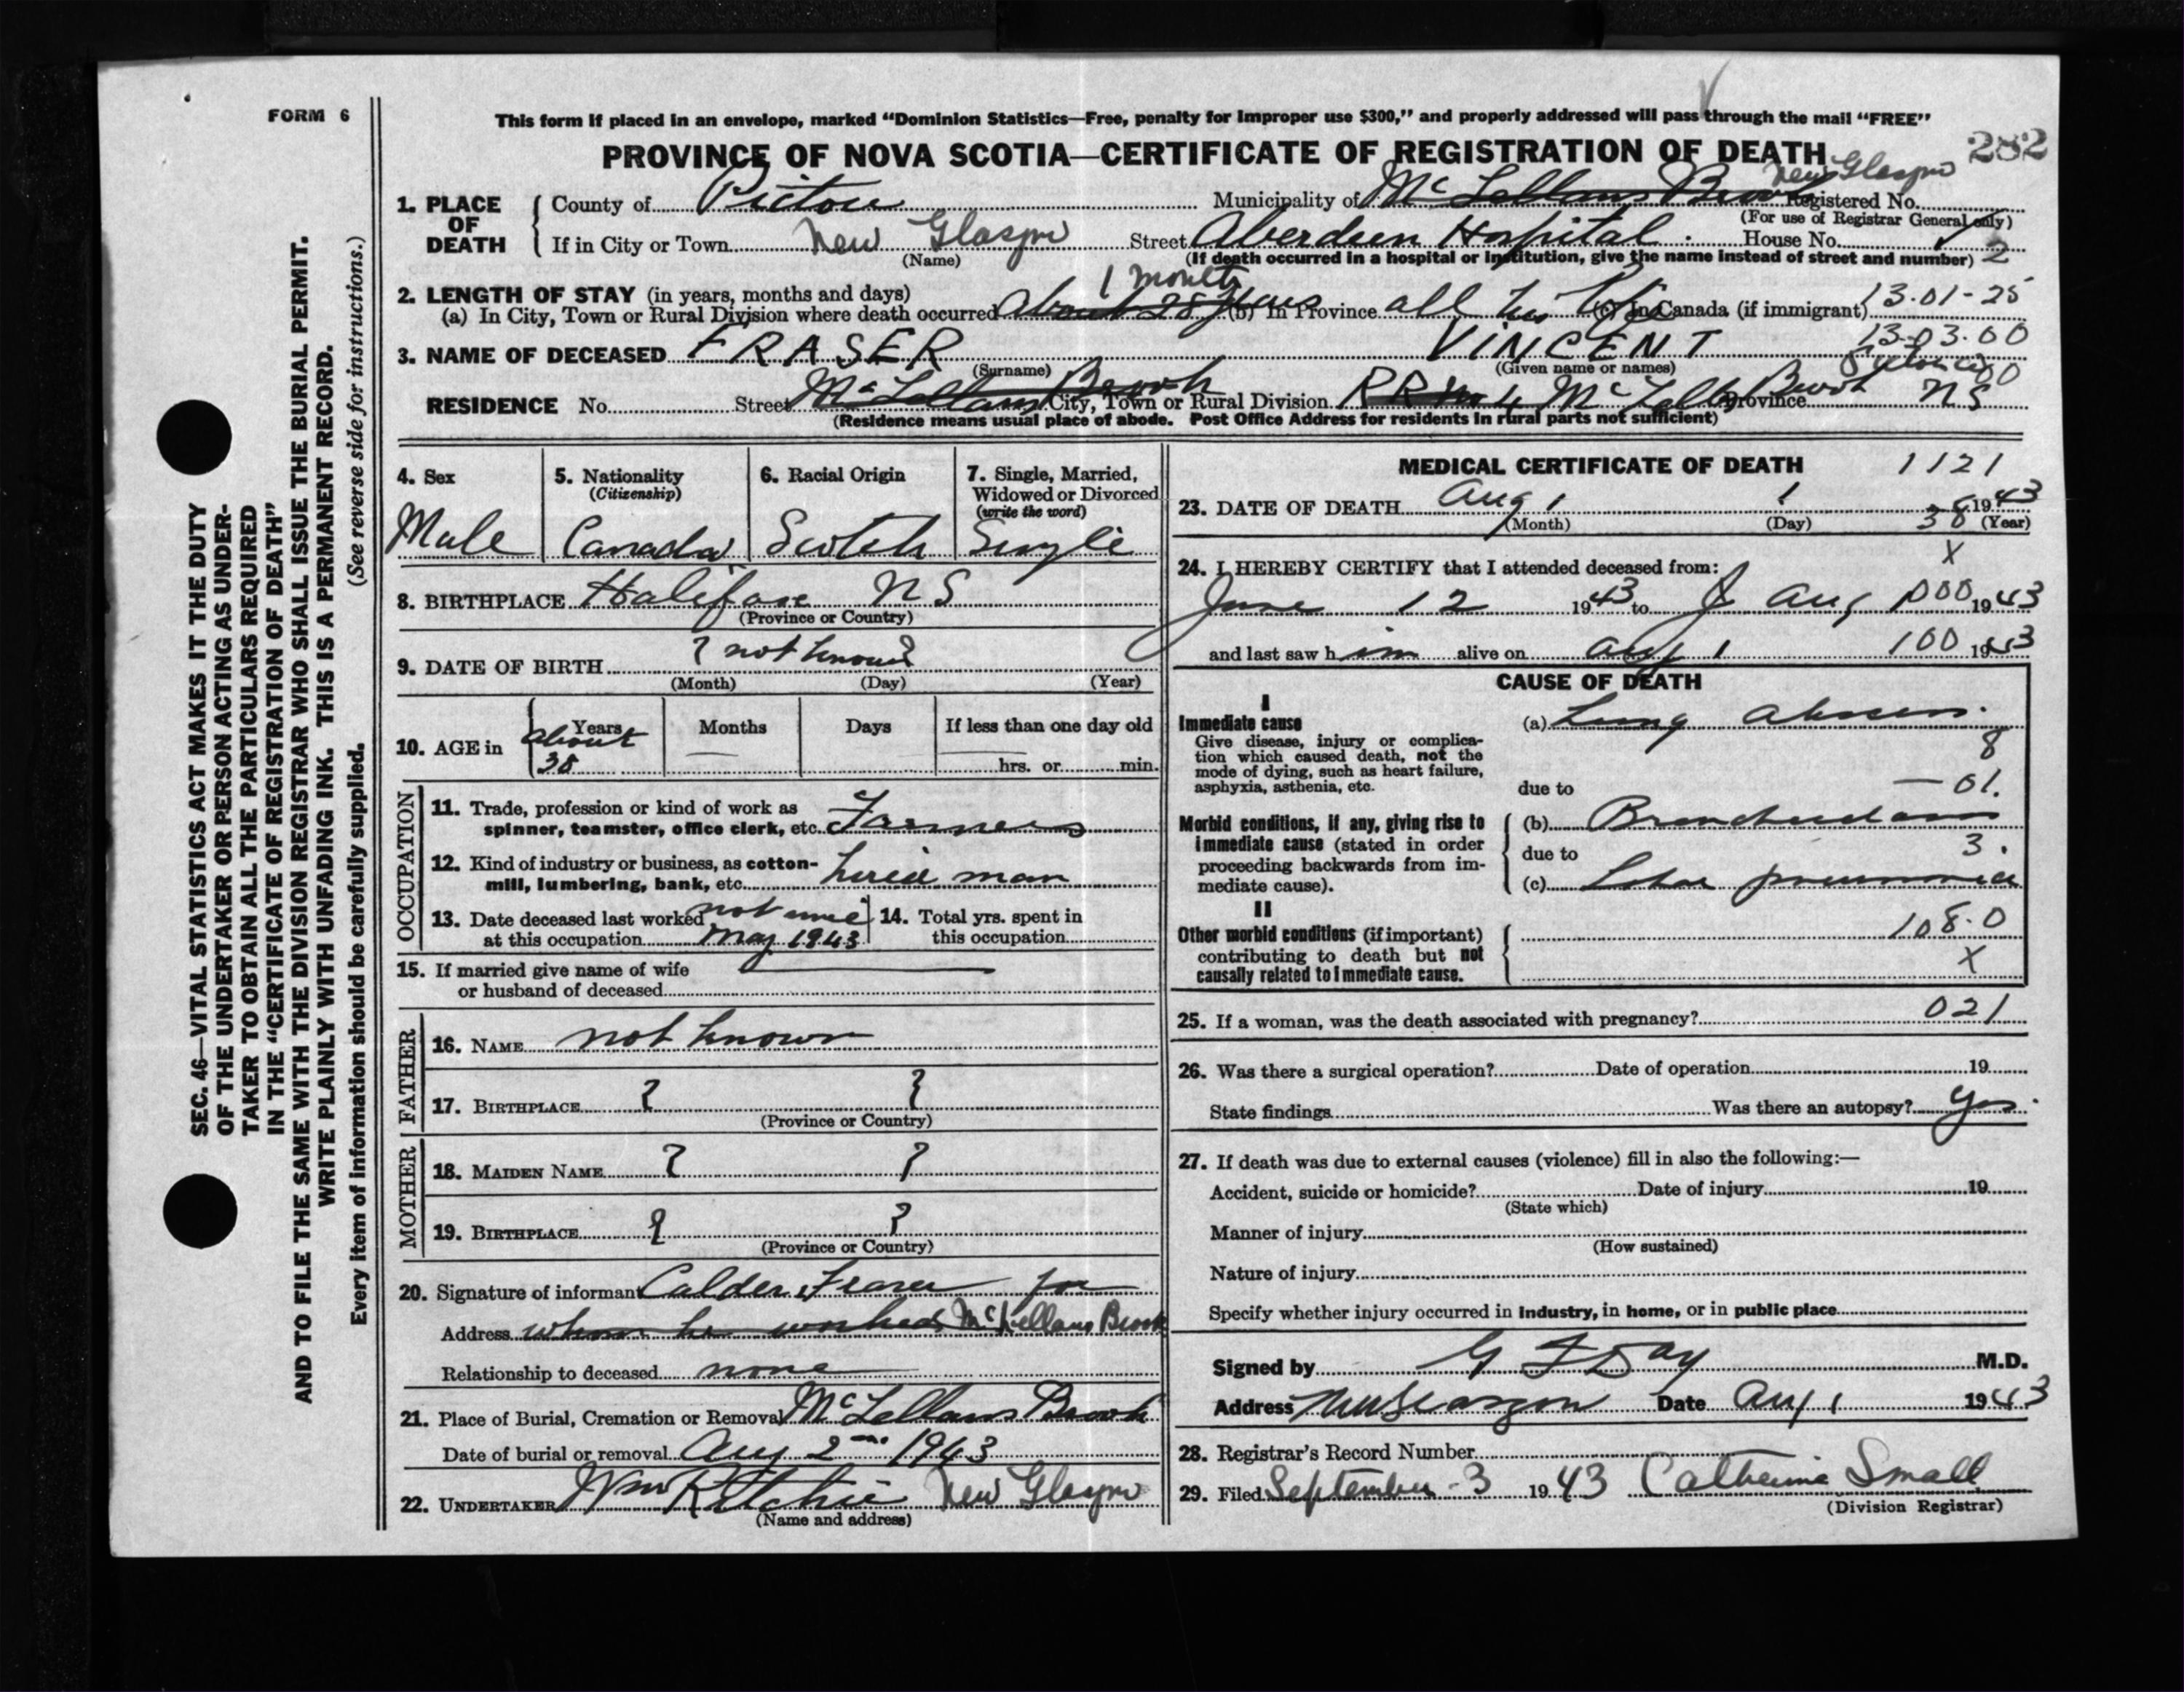 FORM 6
This form if placed in an envelope, marked “Dominion Statistics—Free, penalty for improper use $300,” and properly addressed will pass through the mail “FREE”
PROVINCE OF NOVA SCOTIA—CERTIFICATE OF REGISTRATION OF DEATH 282
New Glasgow
1. PLACE OF DEATH { County of Pictou Municipality of McLellans Brook Registered No.
(For use of Registrar General only)
If in City or Town New Glasgow Street Aberdeen Hospital House No.
(Name) (If death occurred in a hospital or institution, give the name instead of street and number) 2
1 month
2. LENGTH OF STAY (in years, months and days)
(a) In City, Town or Rural Division where death occurred about 28 years (b) In Province all his life (c) In Canada (if immigrant) 13.01-25
13.03.00
3. NAME OF DECEASED FRASER VINCENT
(Surname) (Given name or names)
RESIDENCE No. Street McLellans Brook City, Town or Rural Division RR No 4 McLellans Brook Province NS
(Residence means usual place of abode. Post Office Address for residents in rural parts not sufficient)
4. Sex 5. Nationality 6. Racial Origin 7. Single, Married,
(Citizenship) Widowed or Divorced
(write the word)
Male Canada Scotch Single
8. BIRTHPLACE Halifax NS
(Province or Country)
9. DATE OF BIRTH ? not known
(Month) (Day) (Year)
10. AGE in Years Months Days If less than one day old
about 38 hrs. or min.
OCCUPATION
11. Trade, profession or kind of work as
spinner, teamster, office clerk, etc. Farmers
12. Kind of industry or business, as cotton-
mill, lumbering, bank, etc. hired man
13. Date deceased last worked not since 14. Total yrs. spent in
at this occupation May 1943 this occupation
15. If married give name of wife
or husband of deceased
FATHER
16. NAME not known
17. BIRTHPLACE ? ?
(Province or Country)
MOTHER
18. MAIDEN NAME ? ?
19. BIRTHPLACE ? ?
(Province or Country)
20. Signature of informant Calder Fraser for
Address whom he worked McLellans Brook
Relationship to deceased none
21. Place of Burial, Cremation or Removal McLellans Brook
Date of burial or removal Aug 2nd 1943
22. UNDERTAKER Wm Ritchie New Glasgow
(Name and address)
MEDICAL CERTIFICATE OF DEATH 1121
23. DATE OF DEATH Aug 1 1943
(Month) (Day) 38 (Year)
X
24. I HEREBY CERTIFY that I attended deceased from:
June 12 1943 to Aug 1 000 1943
and last saw him alive on Aug 1 100 1943
CAUSE OF DEATH
I
Immediate cause (a) Lung abscess.
Give disease, injury or complica-
tion which caused death, not the 8
mode of dying, such as heart failure,
asphyxia, asthenia, etc. due to — 01.
Morbid conditions, if any, giving rise to (b)
immediate cause (stated in order due to 3.
proceeding backwards from im-
mediate cause). (c) Lobar pneumonia
II
Other morbid conditions (if important) 108.0
contributing to death but not
causally related to immediate cause. X
25. If a woman, was the death associated with pregnancy? 021
26. Was there a surgical operation? Date of operation 19
State findings Was there an autopsy? Yes.
27. If death was due to external causes (violence) fill in also the following:—
Accident, suicide or homicide? Date of injury 19
(State which)
Manner of injury
(How sustained)
Nature of injury
Specify whether injury occurred in industry, in home, or in public place
Signed by G F Day M.D.
Address New Glasgow Date Aug 1 1943
28. Registrar's Record Number
29. Filed September 3 1943 Catherine Small
(Division Registrar)
SEC. 46—VITAL STATISTICS ACT MAKES IT THE DUTY
OF THE UNDERTAKER OR PERSON ACTING AS UNDER-
TAKER TO OBTAIN ALL THE PARTICULARS REQUIRED
IN THE “CERTIFICATE OF REGISTRATION OF DEATH”
AND TO FILE THE SAME WITH THE DIVISION REGISTRAR WHO SHALL ISSUE THE BURIAL PERMIT.
WRITE PLAINLY WITH UNFADING INK. THIS IS A PERMANENT RECORD.
Every item of information should be carefully supplied. (See reverse side for instructions.)